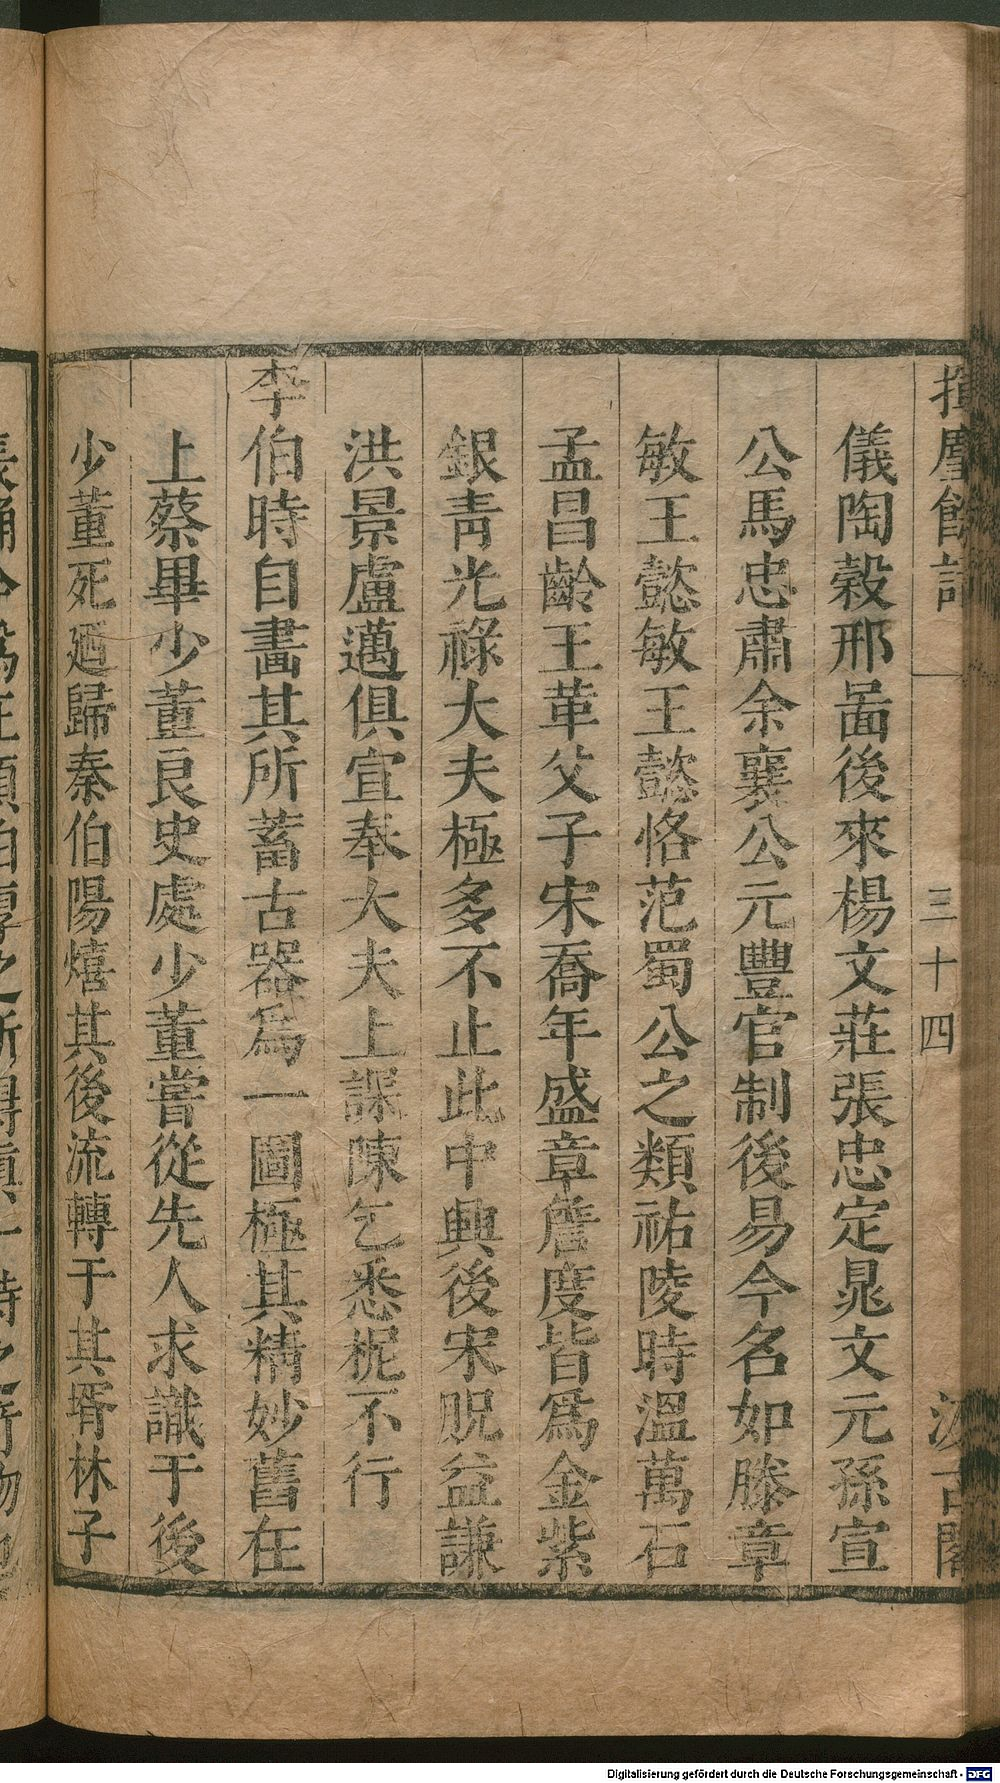 揮麈餘話
三十四
汲古閣
儀陶穀邢昺後來楊文莊張忠定晁文元孫宣
公馬忠肅余襄公元豐官制後易今名如滕章
敏王懿敏王懿恪范蜀公之類祐陵時溫萬石
孟昌齡王革父子宋喬年盛章詹度皆爲金紫
銀青光祿大夫極多不止此中興後宋貺益謙
洪景盧邁俱宣奉大夫上課陳乞悉柅不行
李伯時自畫其所蓄古器爲一圖極其精妙舊在
上蔡畢少董良史處少董嘗從先人求識于後
少董死廼歸秦伯陽熺其後流轉于其壻林子
Digitalisierung gefördert durch die Deutsche Forschungsgemeinschaft - DFG